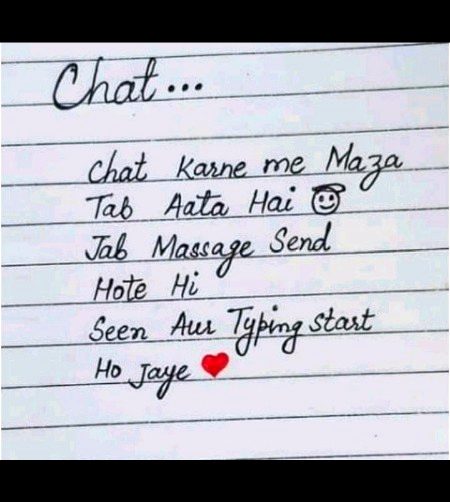 Chat...
Chat Karne me Maza
Tab Aata Hai
Jab Massage Send
Hote Hi
Seen Aur Typing start
Ho Jaye